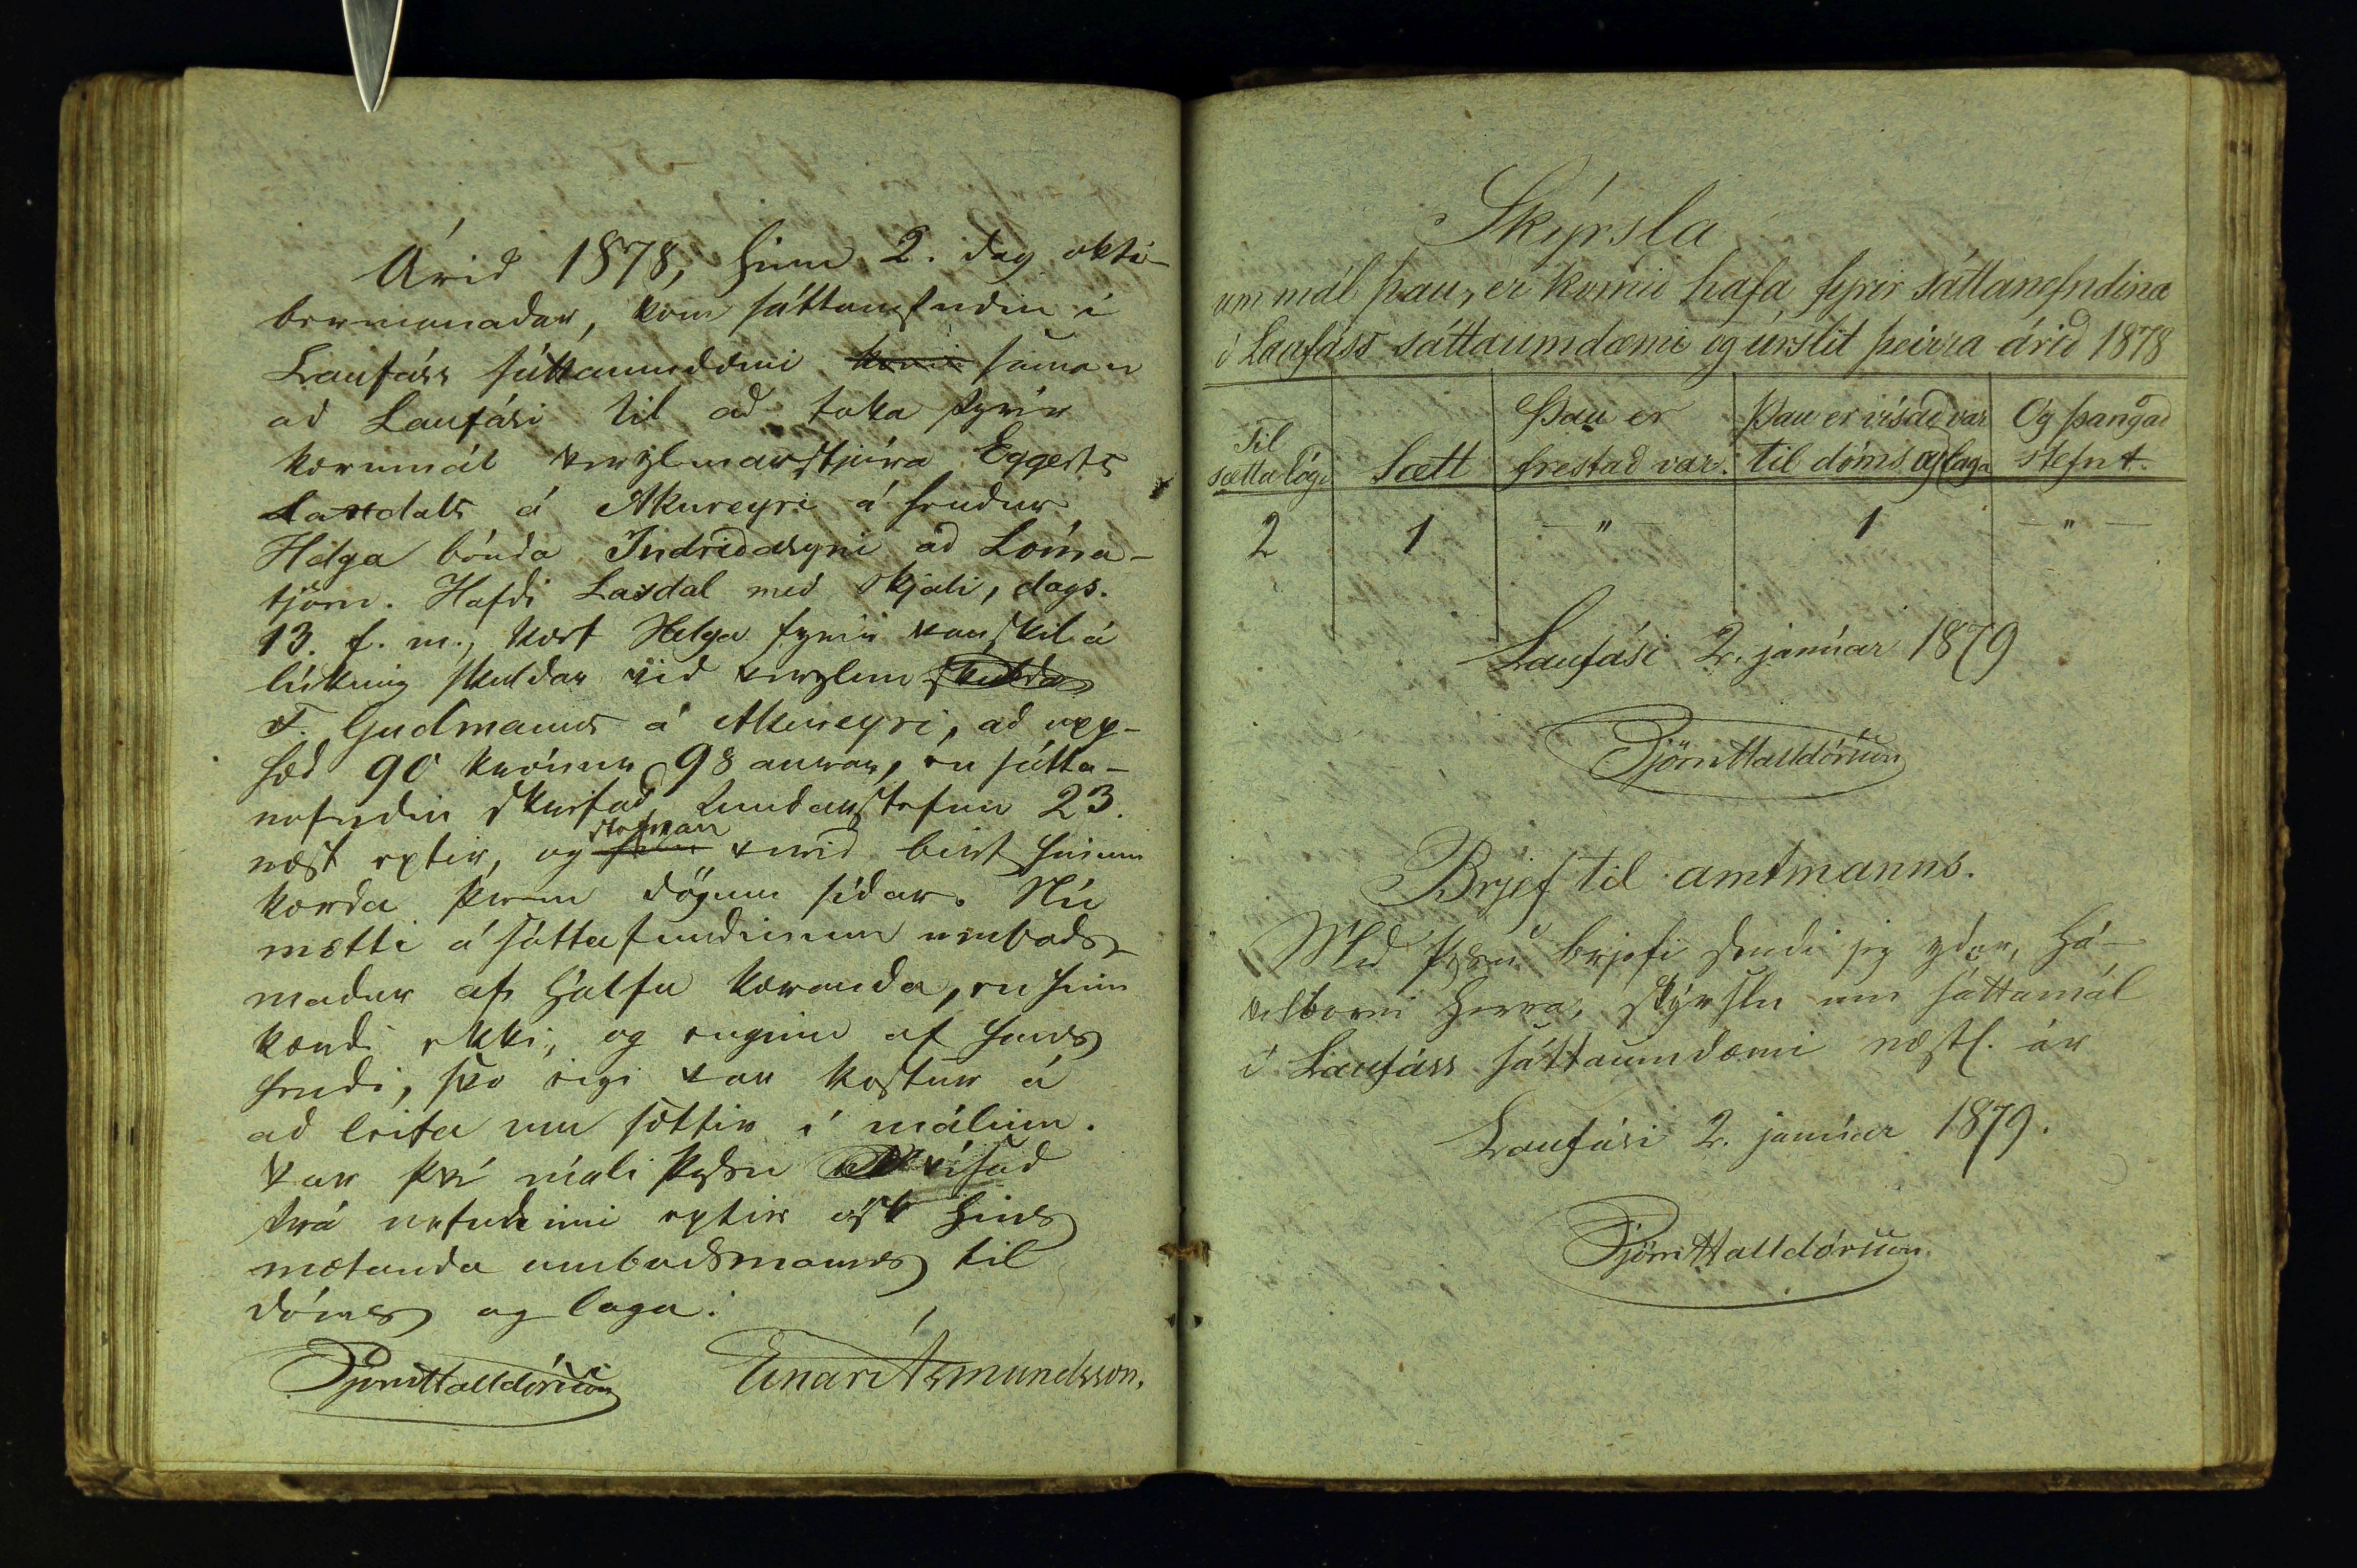 Árið 1878, hinn 2. dag októ-
bermánaðar, kom sáttanefndin í
Laufáss sáttaumdæmi kom saman
að Laufási til að taka fyrir
kærumál verzlunarstjóra Eggerts
Laxdals á Akureyri á hendur
Helga bónda Indriðasyni að Lóma-
tjörn. Hafði Laxdal með skjali, dags.
13. f. m., kært Helga fyrir vanskil á
lúkning skuldar við verzlun skulda
F. Gudmanns á Akureyri, að upp-
hæð 90 krónur 98 aurar, en sátta-
nefndin skrifað fundarstefnu 23.
næst eptir, og stefnan verið birt hinum
kærða þrem dögum síðar. Nú
mætti á sáttafundinum umboðs-
maður af hálfu kæranda, en hinn
kærði ekki, og enginn af hans
hendi, svo eigi var kostur á
að leita um sættir í málinu.
Var því máli þessu vísað
frá nefndinni eptir ósk hins
mætanda umboðsmanns til
dóms og laga.
Björn Halldórsson Einar Ásmundsson.
Skýrsla
um mál þau, er komið hafa fyrir sáttanefndina
í Laufáss sáttaumdæmi og úrslit þeirra árið 1878
Til sætta lögð | Sætt | Þau er frestað var. | Þau er vísað var til dóms og laga | Og þangað stefnt.
2 | 1 | — " — | 1 | — " —
Laufási 2. janúar 1879
Björn Halldórsson
Brjef til amtmanns.
Með þessu brjefi sendi jeg yður, há-
velborni herra, skýrslu um sáttamál
í Laufáss sáttaumdæmi næstl. ár
Laufási 2. janúar 1879.
Björn Halldórsson